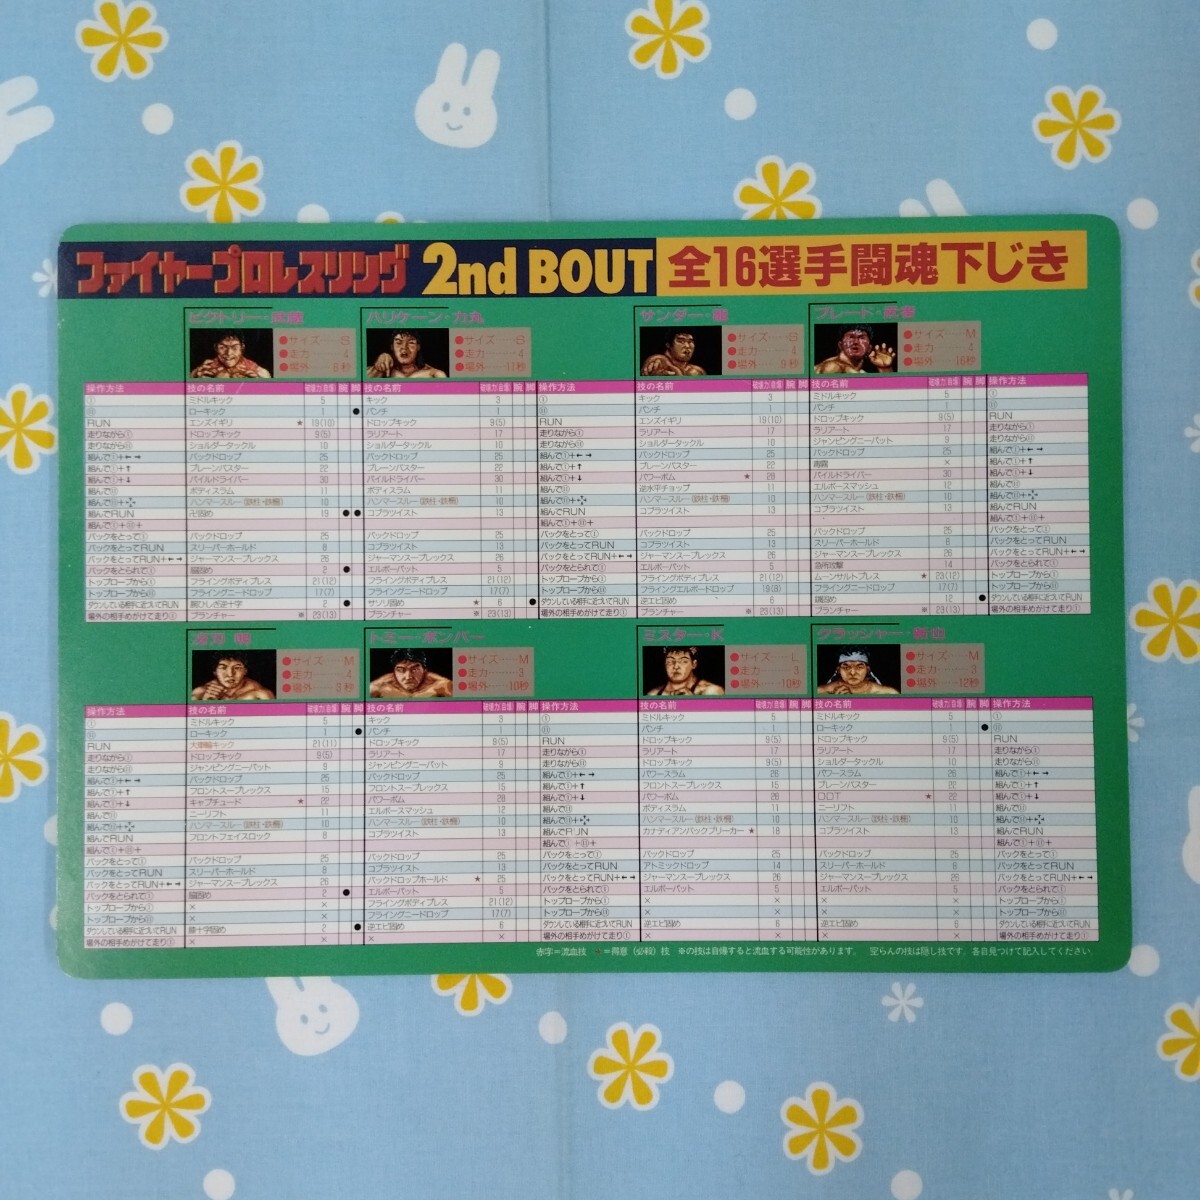 ファイヤープロレスリング 2nd BOUT 全16選手闘魂下じき
ビクトリー・武蔵
●サイズ……S
●走力……4
●場外……8秒
ハリケーン・力丸
●サイズ……S
●走力……4
●場外……11秒
サンダー・龍
●サイズ……S
●走力……4
●場外……9秒
ブレード・
●サイズ……M
●走力……4
●場外……16秒
操作方法 技の名前 破壊力(自爆) 腕 脚 技の名前 破壊力(自爆) 腕 脚 操作方法
ミドルキック 5 キック 3
ローキック 1 ● パンチ 1
RUN エンズイギリ ★ 19(10) ドロップキック 9(5) RUN
走りながらⅠ ドロップキック 9(5) ラリアート 17 走りながらⅠ
走りながらⅡ ショルダータックル 10 ショルダータックル 10 走りながらⅡ
組んでⅠ+←→ バックドロップ 25 バックドロップ 25 組んでⅠ+←→
組んでⅠ+↑ ブレーンバスター 22 ブレーンバスター 22 組んでⅠ+↑
組んでⅠ+↓ パイルドライバー 30 パイルドライバー 30 組んでⅠ+↓
組んでⅡ ボディスラム 11 ボディスラム 11 組んでⅡ
ハンマースルー(鉄柱・鉄柵) 10 ハンマースルー(鉄柱・鉄柵) 10
組んでRUN 卍固め 19 ● ● コブラツイスト 13 組んでRUN
組んでⅠ+Ⅱ+ 組んでⅠ+Ⅱ+
バックをとってⅠ バックドロップ 25 バックドロップ 25 バックをとってⅠ
バックをとってRUN スリーパーホールド 8 コブラツイスト 13 バックをとってRUN
バックをとってRUN+←→ ジャーマンスープレックス 26 ジャーマンスープレックス 26 バックをとってRUN+←→
バックをとられてⅠ 脇固め 2 ● エルボーバット 5 バックをとられてⅠ
トップロープからⅠ フライングボディプレス 21(12) フライングボディプレス 21(12) トップロープからⅠ
トップロープからⅡ フライングニードロップ 17(7) フライングニードロップ 17(7) トップロープからⅡ
ダウンしている相手に近づいてRUN 腕ひしぎ逆十字 2 ● サソリ固め ★ 6 ● ダウンしている相手に近づいてRUN
場外の相手めがけて走りⅠ プランチャー ※ 23(13) プランチャー ※ 23(13) 場外の相手めがけて走りⅠ
技の名前 破壊力(自爆) 腕 脚 技の名前 破壊力(自爆) 腕 脚 操作方法
キック 3 ミドルキック 5
パンチ 1 パンチ 1
エンズイギリ 19(10) ドロップキック 9(5) RUN
ラリアート 17 ラリアート 17 走りながらⅠ
ショルダータックル 10 ジャンピングニーパット 9 走りながらⅡ
バックドロップ 25 バックドロップ 25 組んでⅠ+←→
ブレーンバスター 22 毒霧 × 組んでⅠ+↑
パワーボム ★ 28 パイルドライバー 30 組んでⅠ+↓
逆水平チョップ 11 エルボースマッシュ 12 組んでⅡ
ハンマースルー(鉄柱・鉄柵) 10 ハンマースルー(鉄柱・鉄柵) 10
コブラツイスト 13 コブラツイスト 13 組んでRUN
組んでⅠ+Ⅱ+
バックドロップ 25 バックドロップ 25 バックをとってⅠ
コブラツイスト 13 スリーパーホールド 8 バックをとってRUN
ジャーマンスープレックス 26 ジャーマンスープレックス 26 バックをとってRUN+←→
エルボーバット 5 急所攻撃 14 バックをとられてⅠ
フライングボディプレス 21(12) ムーンサルトプレス ★ 23(12) トップロープからⅠ
フライングエルボードロップ 19(8) フライングニードロップ 17(7) トップロープからⅡ
逆エビ固め 6 12 ● ダウンしている相手に近づいてRUN
プランチャー ※ 23(13) プランチャー ※ 23(13) 場外の相手めがけて走りⅠ
●サイズ……M
●走力……4
●場外……3秒
トミー・ボンバー
●サイズ……M
●走力……3
●場外……10秒
ミスター・K
●サイズ……L
●走力……3
●場外……10秒
クラッシャー・
●サイズ……M
●走力……3
●場外……12秒
操作方法 技の名前 破壊力(自爆) 腕 脚 技の名前 破壊力(自爆) 腕 脚 操作方法
ミドルキック 5 キック 3
ローキック 1 ● パンチ 1
RUN 大車輪キック 21(11) ドロップキック 9(5) RUN
走りながらⅠ ドロップキック 9(5) ラリアート 17 走りながらⅠ
走りながらⅡ ジャンピングニーパット 9 ジャンピングニーパット 9 走りながらⅡ
組んでⅠ+←→ バックドロップ 25 バックドロップ 25 組んでⅠ+←→
組んでⅠ+↑ フロントスープレックス 15 フロントスープレックス 15 組んでⅠ+↑
組んでⅠ+↓ キャプチュード ★ 22 パワーボム 28 組んでⅠ+↓
組んでⅡ ニーリフト 11 エルボースマッシュ 12 組んでⅡ
ハンマースルー(鉄柱・鉄柵) 10 ハンマースルー(鉄柱・鉄柵) 10
組んでRUN フロントフェイスロック 8 コブラツイスト 13 組んでRUN
組んでⅠ+Ⅱ+ 組んでⅠ+Ⅱ+
バックをとってⅠ バックドロップ 25 バックドロップ 25 バックをとってⅠ
バックをとってRUN スリーパーホールド 8 コブラツイスト 13 バックをとってRUN
バックをとってRUN+←→ ジャーマンスープレックス 26 バックドロップホールド ★ 25 バックをとってRUN+←→
バックをとられてⅠ 脇固め 2 ● エルボーバット 5 バックをとられてⅠ
トップロープからⅠ × × フライングボディプレス 21(12) トップロープからⅠ
トップロープからⅡ × × フライングニードロップ 17(7) トップロープからⅡ
ダウンしている相手に近づいてRUN 膝十字固め 2 ● 逆エビ固め 6 ダウンしている相手に近づいてRUN
場外の相手めがけて走りⅠ × × × × 場外の相手めがけて走りⅠ
技の名前 破壊力(自爆) 腕 脚 技の名前 破壊力(自爆) 腕 脚 操作方法
ミドルキック 5 ミドルキック 5
パンチ 1 ローキック 1 ●
ドロップキック 9(5) ドロップキック 9(5) RUN
ラリアート 17 ラリアート 17 走りながらⅠ
ドロップキック 9(5) ショルダータックル 10 走りながらⅡ
パワースラム 26 パワースラム 26 組んでⅠ+←→
フロントスープレックス 15 ブレーンバスター 22 組んでⅠ+↑
パワーボム 28 DDT ★ 22 組んでⅠ+↓
ボディスラム 11 ニーリフト 11 組んでⅡ
ハンマースルー(鉄柱・鉄柵) 10 ハンマースルー(鉄柱・鉄柵) 10
カナディアンバックブリーカー ★ 18 コブラツイスト 13 組んでRUN
組んでⅠ+Ⅱ+
バックドロップ 25 バックドロップ 25 バックをとってⅠ
アトミックドロップ 14 スリーパーホールド 8 バックをとってRUN
ジャーマンスープレックス 26 ジャーマンスープレックス 26 バックをとってRUN+←→
エルボーバット 5 エルボーバット 5 バックをとられてⅠ
× × × × トップロープからⅠ
× × × × トップロープからⅡ
逆エビ固め 6 逆エビ固め 6 ダウンしている相手に近づいてRUN
× × × × 場外の相手めがけて走りⅠ
赤字=流血技 ★=得意(必殺)技 ※の技は自爆すると流血する可能性があります。 空らんの技は隠し技です。各自見つけて記入してください。